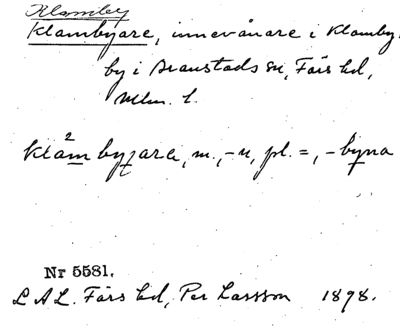 Klamby
Klambyare, innevånare i Klamby,
by i Branstads sn, Färs hd,
Mlm. l.
2
klåm byʒara, m., -n, pl. =, -byna
Nr 5581.
L A L. Färs hd, Per Larsson 1898.